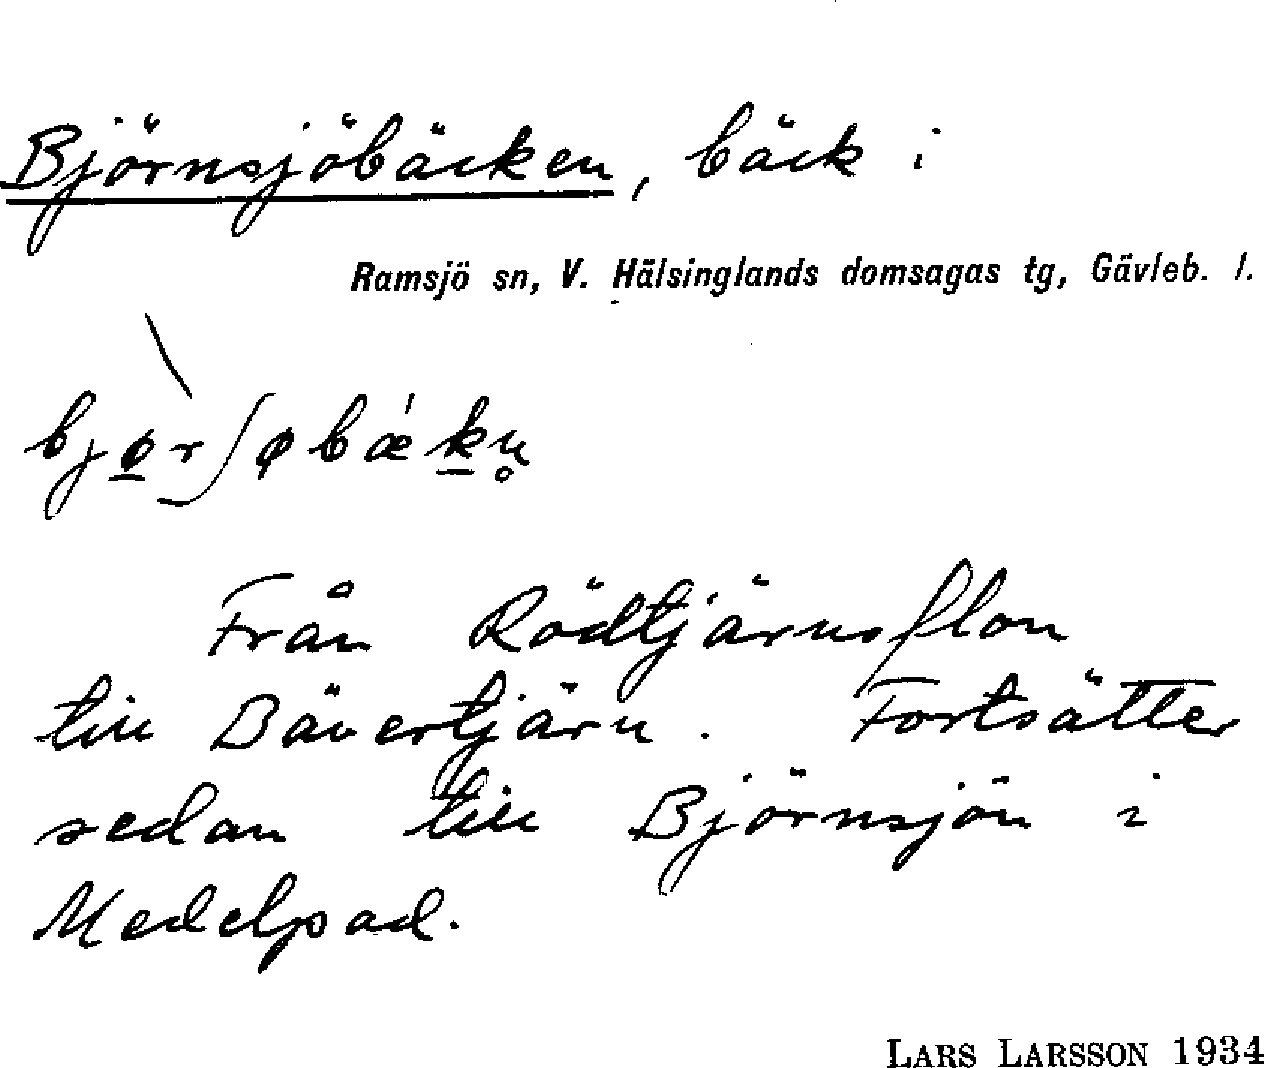 Björnsjöbäcken, bäck i
Ramsjö sn, V. Hälsinglands domsagas tg, Gävleb. l.
bjø̲̀rʃøbǽk̲n̥
Från Rödtjärnsflon
till Bävertjärn. Fortsätter
sedan till Björnsjön i
Medelpad.
LARS LARSSON 1934